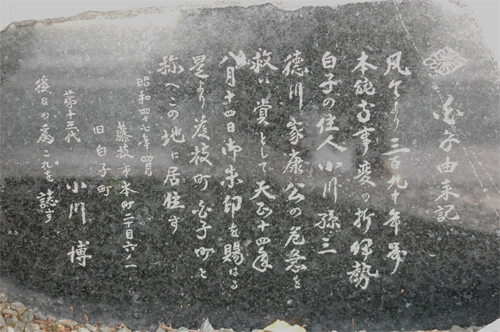 白子由来記
今より三百九十年前
本能寺事変の折伊勢
白子の住人小川孫三
徳川家康公の危急を
救い賞として天正十四年
八月十四日御朱印を賜はる
是より藤枝町白子町と
称へこの地に居住す
昭和四十七年四月
藤枝市本町二丁目六ノ一
旧白子町
第十三代 小川 博
後日の為これを誌す